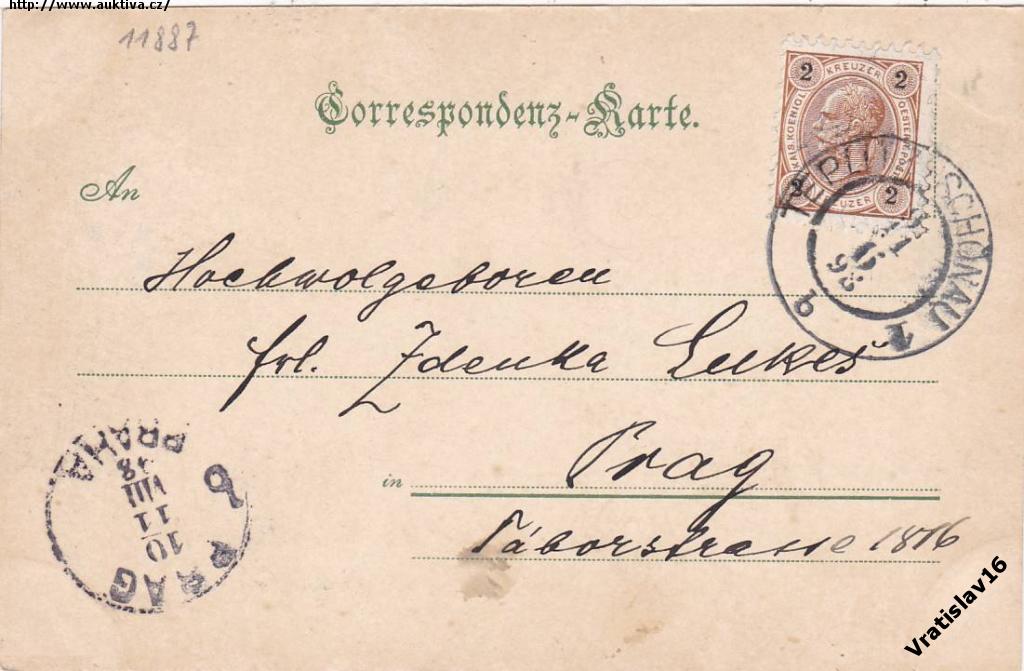 http://www.auktiva.cz/
11887
Correspondenz-Karte.
2 KREUZER 2
KAIS. KOENIGL. OESTERR. POST
2 KREUZER 2
TEPLITZ-SCHÖNAU 1
11
98
An
Hochwolgeboren
frl. Zdenka Lukeš
in Prag
Táborstrasse 1816
PRAG PRAHA
10
11
VIII
98
Vratislav16